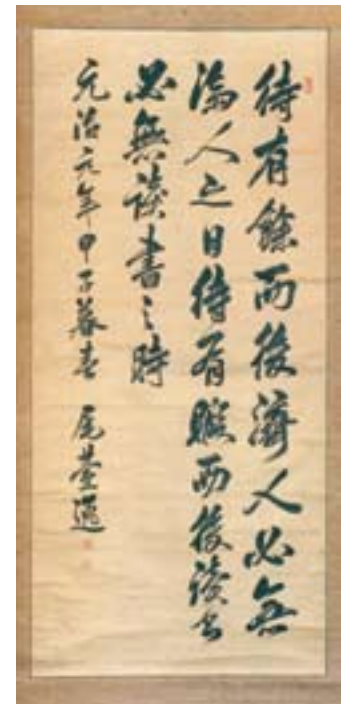 待有餘而後濟人必無
濟人之日待有暇而後讀書
必無讀書之時
元治元年甲子暮春 尾臺逞